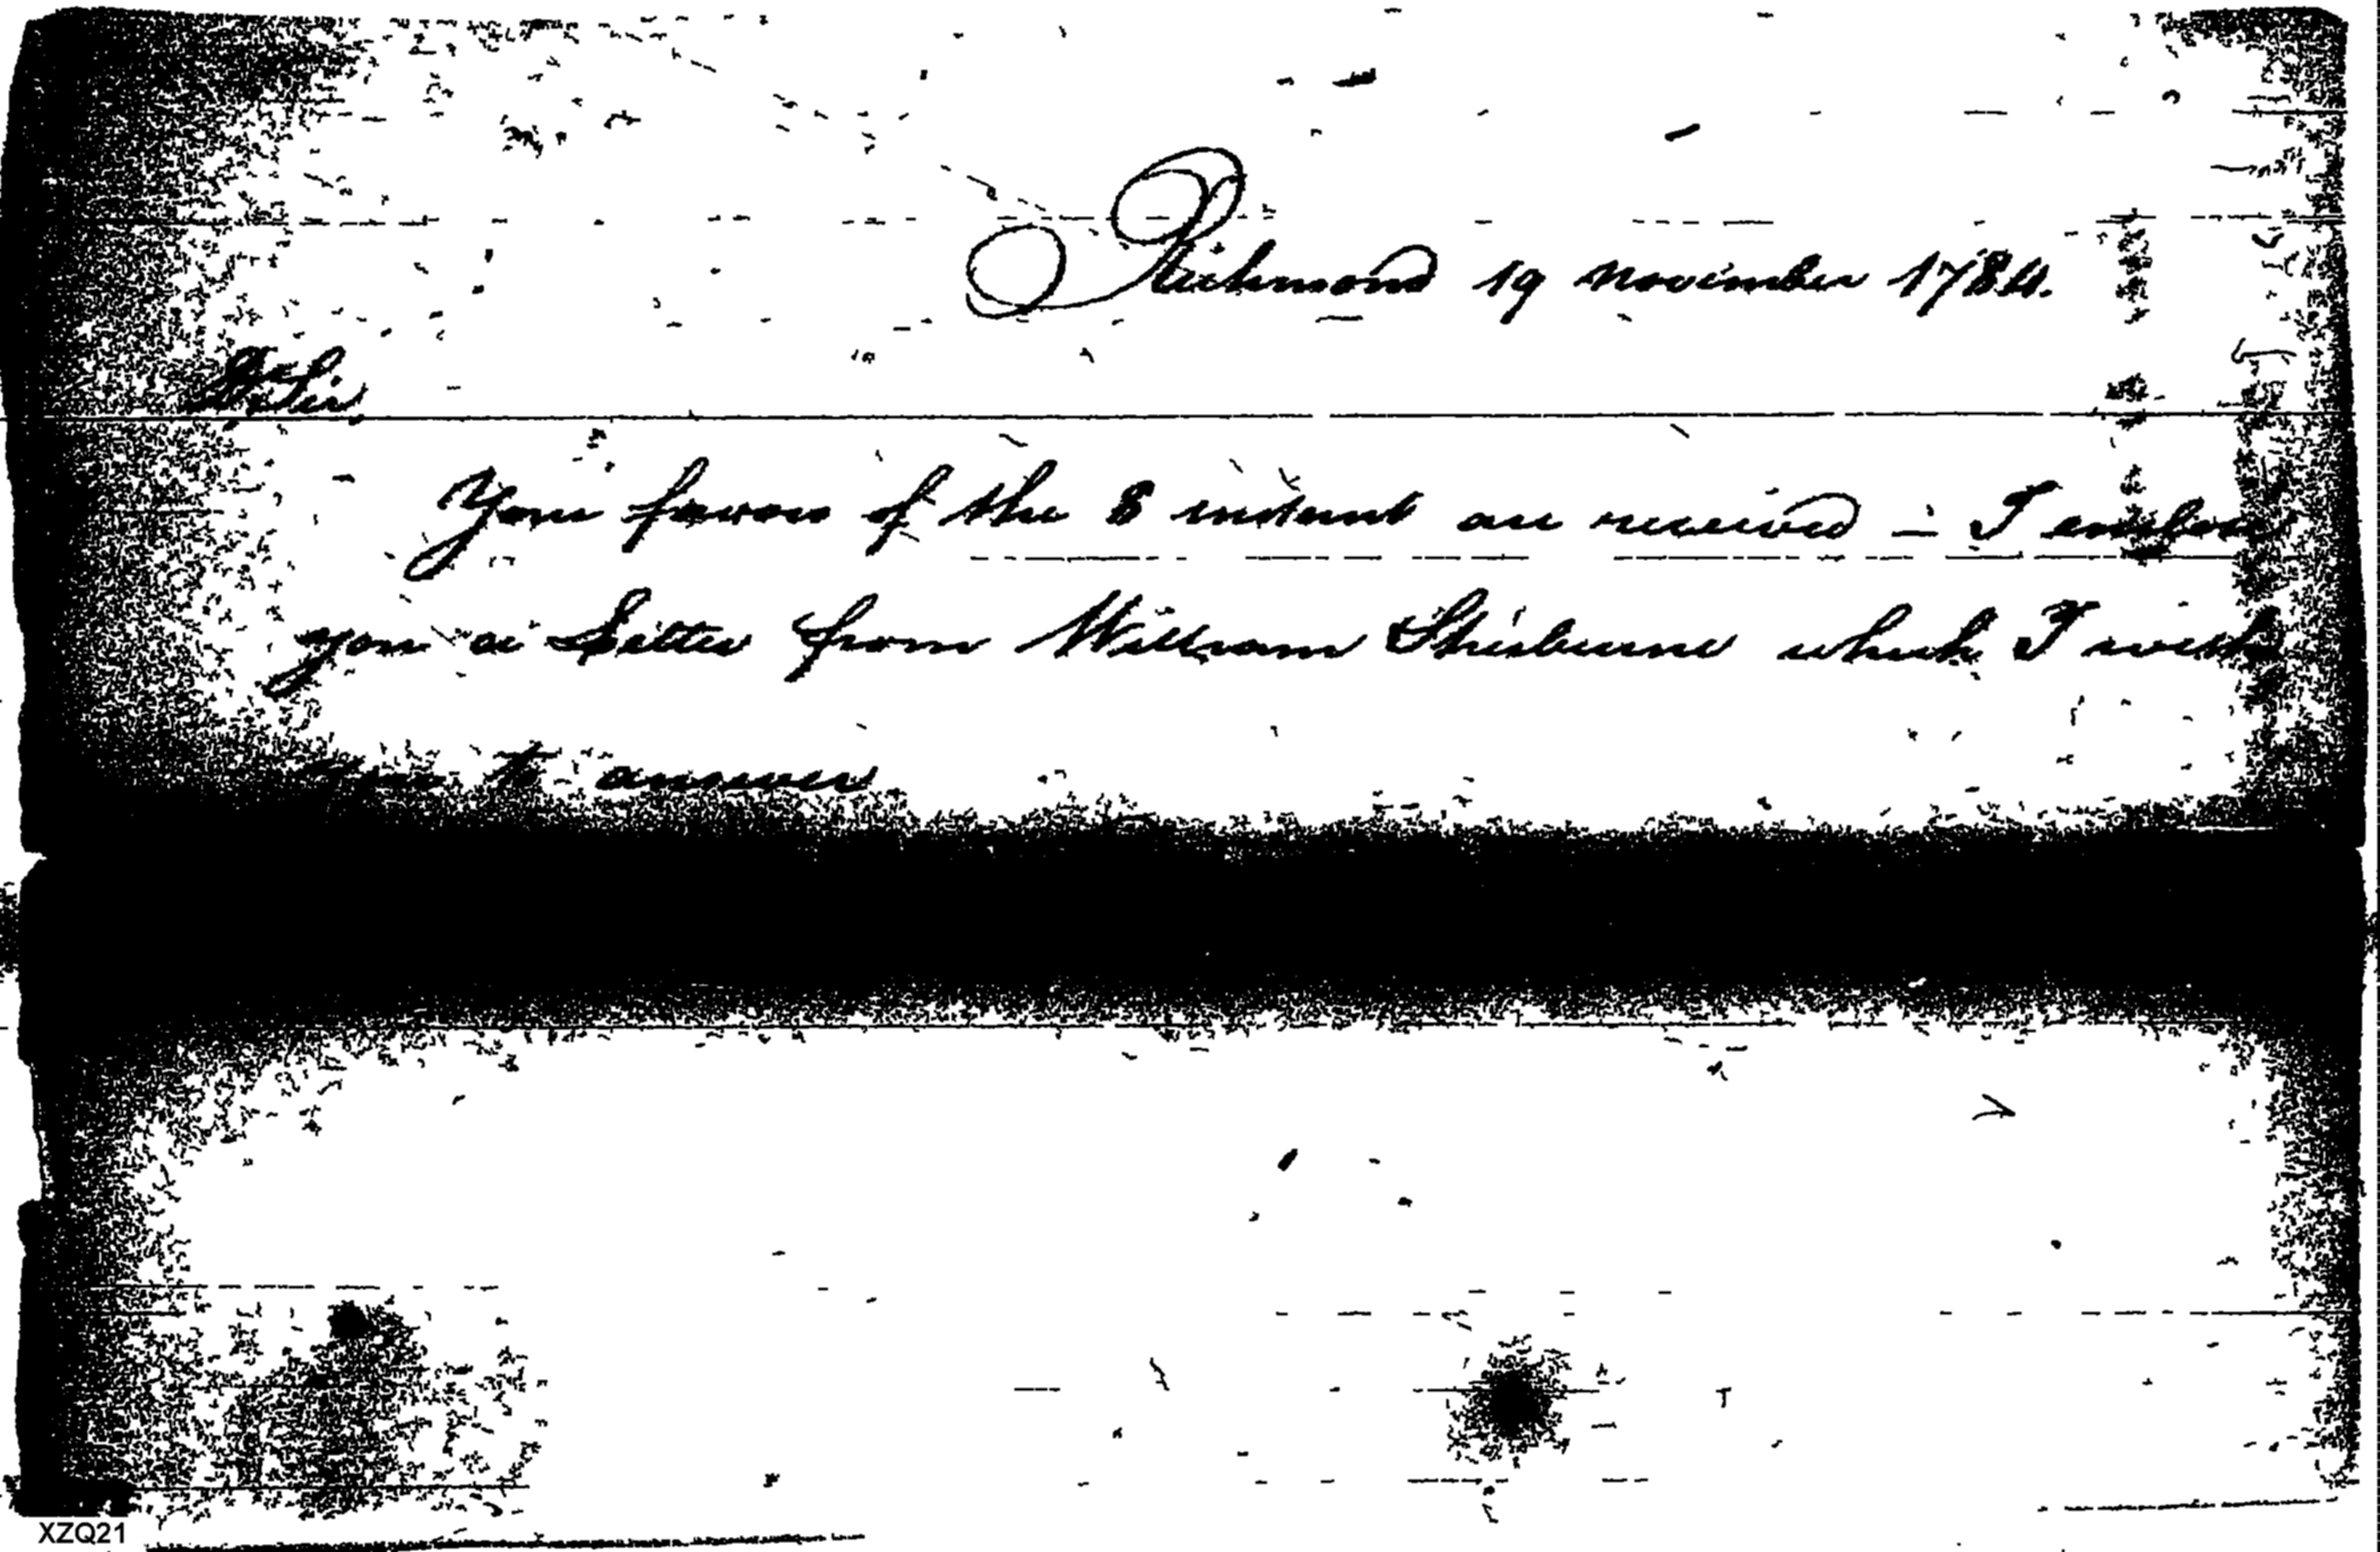 Richmond 19 November 1784.
Dr Sir
Your favors of the 8 instant are received – I enclose
you a Letter from William Sherburne which I wish
you to answer
XZQ21